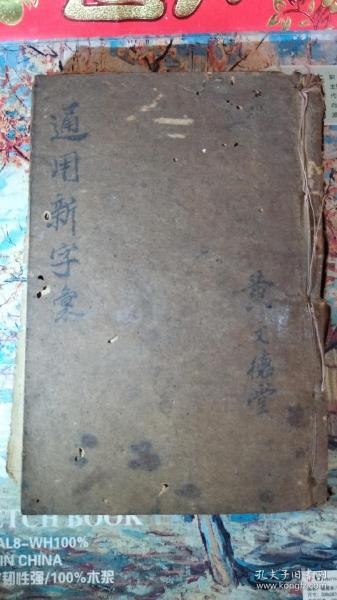 通用新字彙
黄文德堂
TCH BOOK
AL8-WH100%
IN CHINA
韧性强/100%木浆
孔夫子旧书网